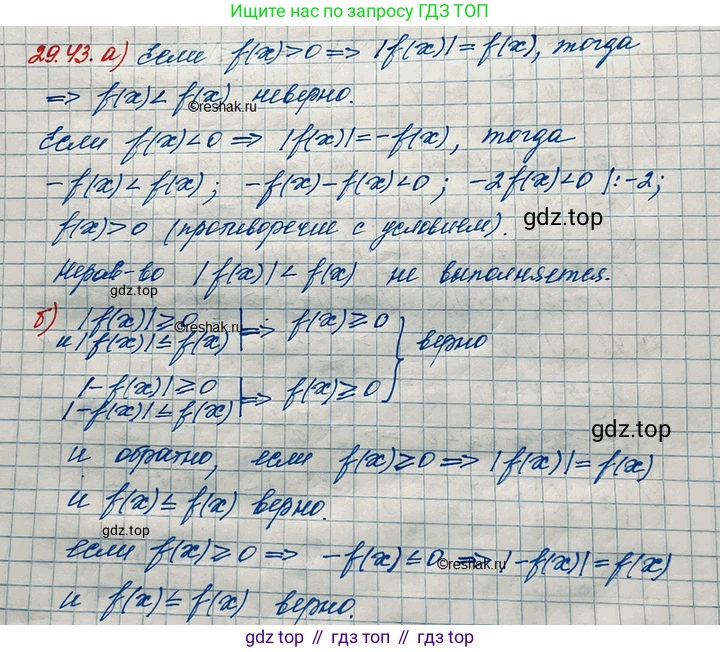 Ищите ответы по запросу ГДЗ ТОП
29.43. а) Если f(x)>0 ⇒ |f(x)|=f(x), тогда
⇒ f(x)<f(x) неверно.
©reshak.ru
Если f(x)<0 ⇒ |f(x)|=-f(x), тогда
-f(x)<f(x); -f(x)-f(x)<0; -2f(x)<0 |:-2;
f(x)>0 (противоречие с условием).
gdz.top
Нерав-во |f(x)|<f(x) не выполняется.
gdz.top
б) |f(x)|≥0
и |f(x)|≤f(x) | ⇒ f(x)≥0
©reshak.ru
} верно
|-f(x)|≥0
|-f(x)|≤f(x) | ⇒ f(x)≥0
gdz.top
и обратно, если f(x)≥0 ⇒ |f(x)|=f(x)
и f(x)≤f(x) верно.
gdz.top
если f(x)≥0 ⇒ -f(x)≤0 ⇒ |-f(x)|=f(x)
©reshak.ru
и f(x)≤f(x) верно.
gdz top // гдз топ // gdz.top